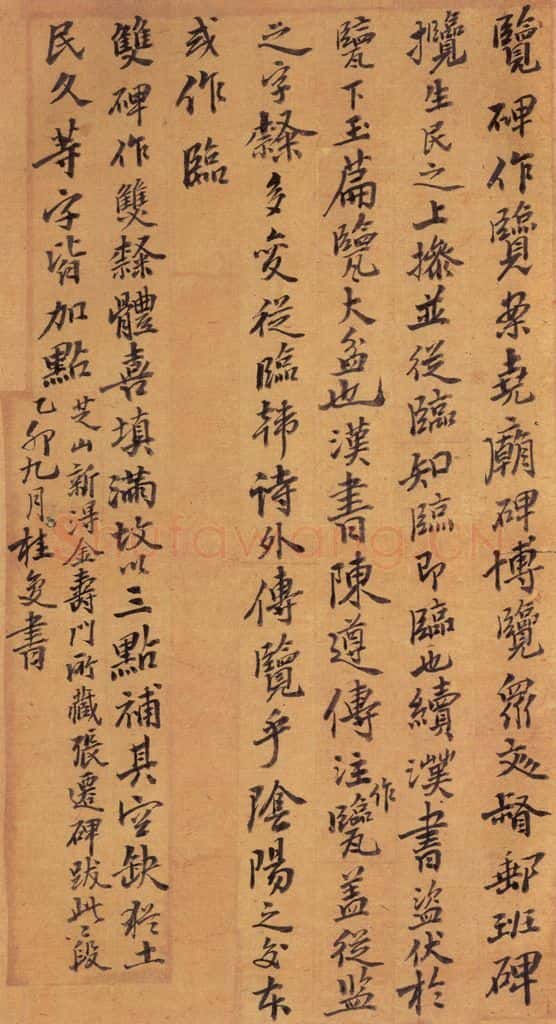 覽碑作覽案堯廟碑博覽眾文督郵班碑
攬生民之上攃並從臨知臨即臨也續漢書盜伏於
甖下玉篇甖大盆也漢書陳遵傳注作甖蓋從監
之字隸多變從臨韩诗外傳覽乎陰陽之交本
或作臨
雙碑作雙隸體喜填滿故以三點補其空缺猶土
民久等字皆加點
芝山新得金壽門所藏張遷碑跋此二段
乙卯九月桂复書